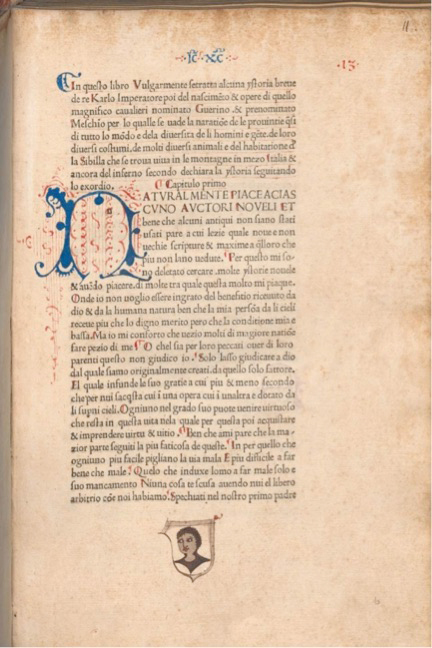 11.
·13·
In questo libro Vulgarmente setratta alcuna ystoria breue
de re Karlo Imperatore poi del nascimẽto & opere di quello
magnifico caualieri nominato Guerino & prenominato
Meschio per lo qualle se uade la naratiõe de le prouintie q̃si
di tutto lo mõdo e dela diuersita de li homini e gẽte. de loro
diuersi costumi. de molti diuersi animali e del habitatione d
la Sibilla che se troua uiua in le montagne in mezo Italia &
ancora del inferno secondo dechiara la ystoria seguitando
lo exordio. Capitulo primo
NATVRALMENTE PIACE A CIAS
CVNO AVCTORI NOVELI ET
bene che alcuni antiqui non siano stati
usati pare a cui lezie quale noue e non
uechie scripture & maxime a q̃lloro che
piu non lano uedute. Per questo mi so-
no deletato cercare molte ystorie nouele
& auẽdo piacere. di molte tra quale questa molto mi piaque.
Onde io non uoglio essere ingrato del benefitio riceuuto da
dio & da la humana natura ben che la mia persõa da li cieli
receue piu che lo digno merito pero che la conditione mia e
bassa. Ma io mi conforto che uezio molti di magiore natiõe
fare pezio di me O chel sia per loro peccati ouer di loro
parenti questo non giudico io. Solo lasso giudicare a dio
dal quale siamo originalmente creati. da quello solo fattore.
El quale infunde le suo gratie a cui piu & meno secondo
che per nui sacqsta cui ĩ una opera cui ĩ unaltra e dotato da
li supni cieli. Ogniuno nel grado suo puote uenire uirtuoso
che resta in questa uita nela quale per questa poi acquistare
& imprendere uirtu & uitio. Ben che ami pare che la ma-
zior parte seguiti la piu faticosa de queste. In per quello che
ogniuno piu facile pigliano la uia mala E piu difficile a far
bene che male. Quelo che induxe lomo a far male solo e
suo mancamento Niuna cosa te scusa auendo nui el libero
arbitrio cõe noi habiamo. Spechiati nel nostro primo padre